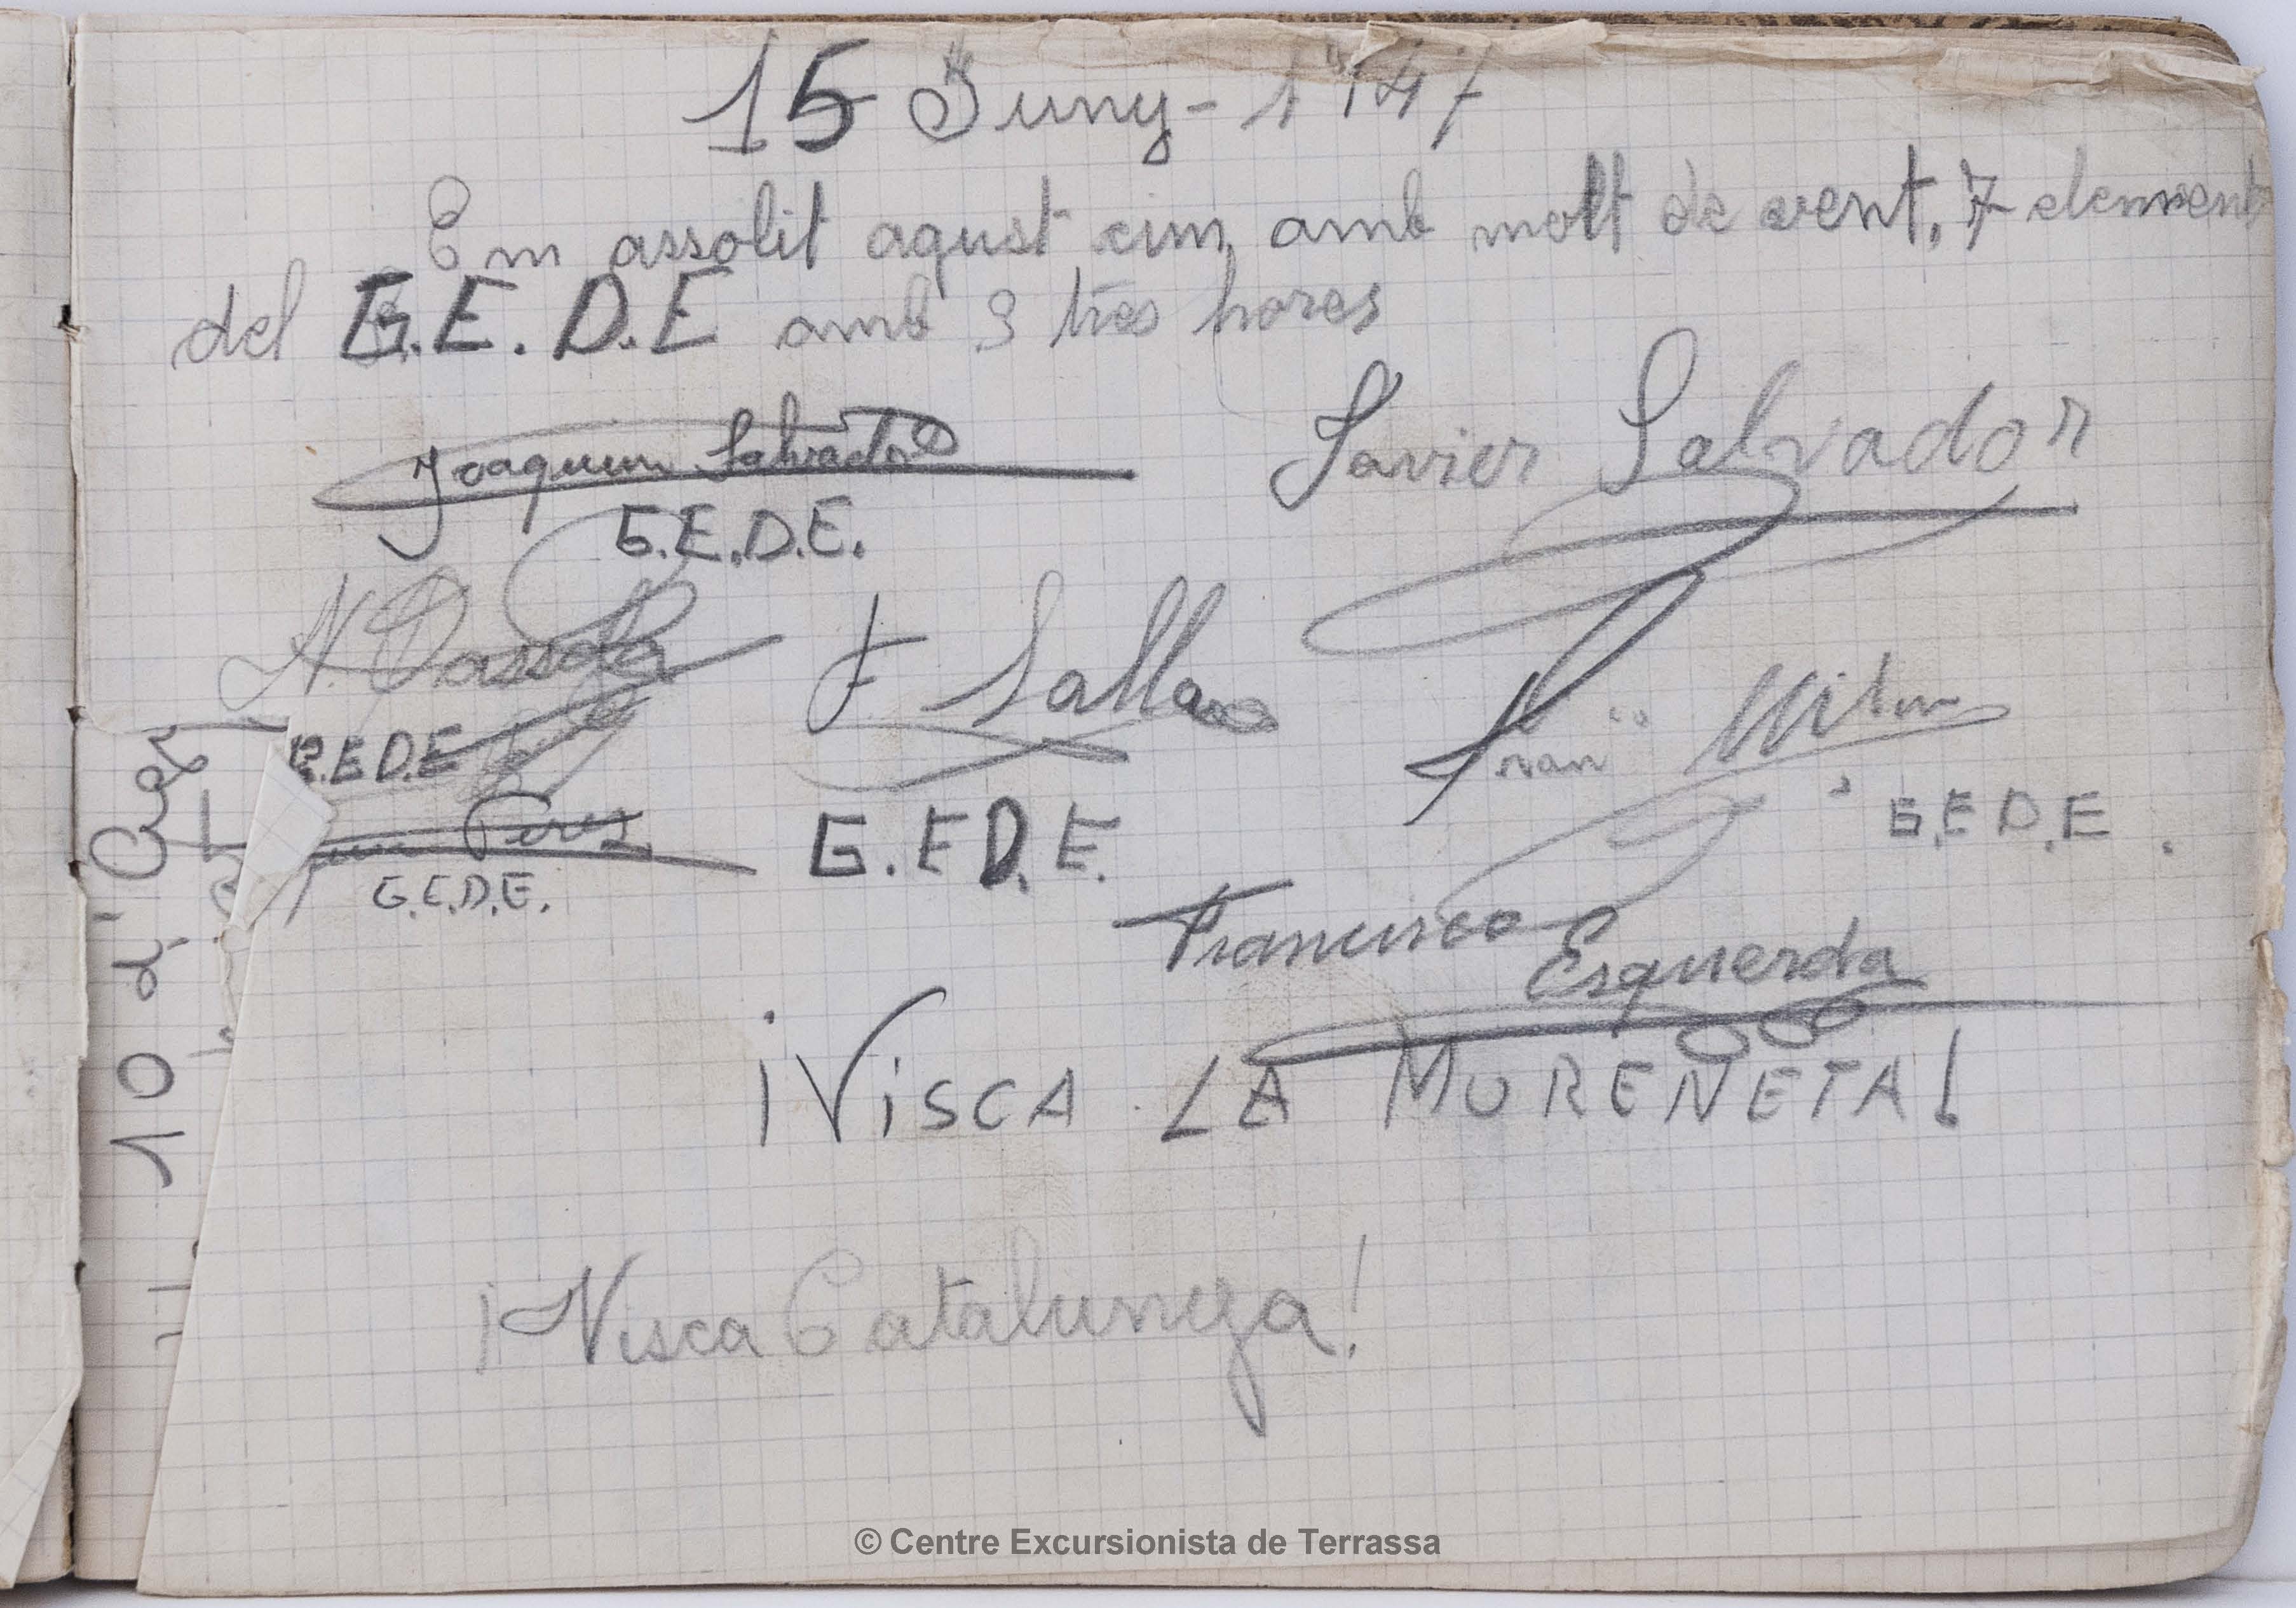 15 Juny - 1947
Em assolit aqust cim, amb molt de vent, 7 element
del G.E.D.E amb 3 tres hores
Joaquim Salvador
G.E.D.E.
Javier Salvador
N.
G.E.D.E
F. Salla
G.E.D.E.
Fran
G.E.D.E.
Perez
G.E.D.E.
Francisco
Esquerda
¡VISCA LA MURENETA!
¡Visca Catalunya!
10 d'
© Centre Excursionista de Terrassa